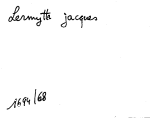 Lermytte jacques
1694/68